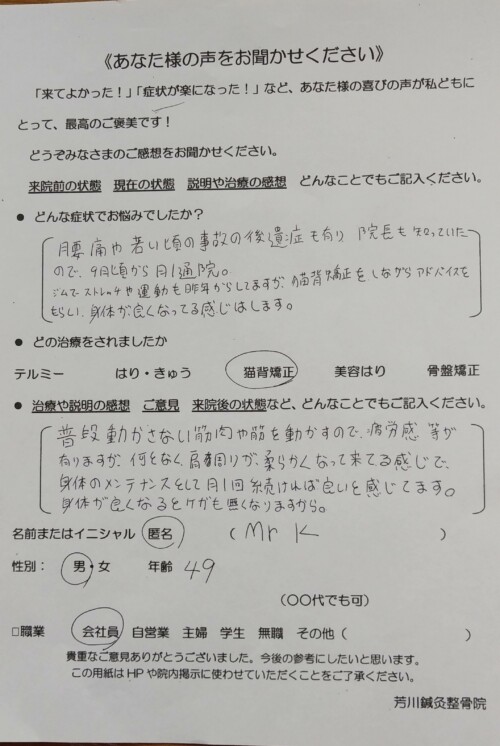 《あなた様の声をお聞かせください》
「来てよかった！」「症状が楽になった！」など、あなた様の喜びの声が私どもに
とって、最高のご褒美です！
どうぞみなさまのご感想をお聞かせください。
来院前の状態　現在の状態　説明や治療の感想　どんなことでもご記入ください。
● どんな症状でお悩みでしたか？
腰痛や若い頃の事故の後遺症も有り 院長も知っていた
ので、9月頃から月1通院。
ジムでストレッチや運動も昨年からしてますが、猫背矯正をしながらアドバイスを
もらい、身体が良くなってる感じはします。
● どの治療をされましたか
テルミー　はり・きゅう　猫背矯正　美容はり　骨盤矯正
● 治療や説明の感想　ご意見　来院後の状態など、どんなことでもご記入ください。
普段動かさない筋肉や筋を動かすので、疲労感 等が
有りますが、何となく、肩周りが、柔らかくなって来てる感じで、
身体のメンテナンスとして月1回続ければ良いと感じてます。
身体が良くなるとケガも無くなりますから。
名前またはイニシャル　匿名　（ Mr K ）
性別：　男・女　年齢 49
（〇〇代でも可）
□職業　会社員　自営業　主婦　学生　無職　その他（　）
貴重なご意見ありがとうございました。今後の参考にしたいと思います。
この用紙はHPや院内掲示に使わせていただくことをご了承ください。
芳川鍼灸整骨院